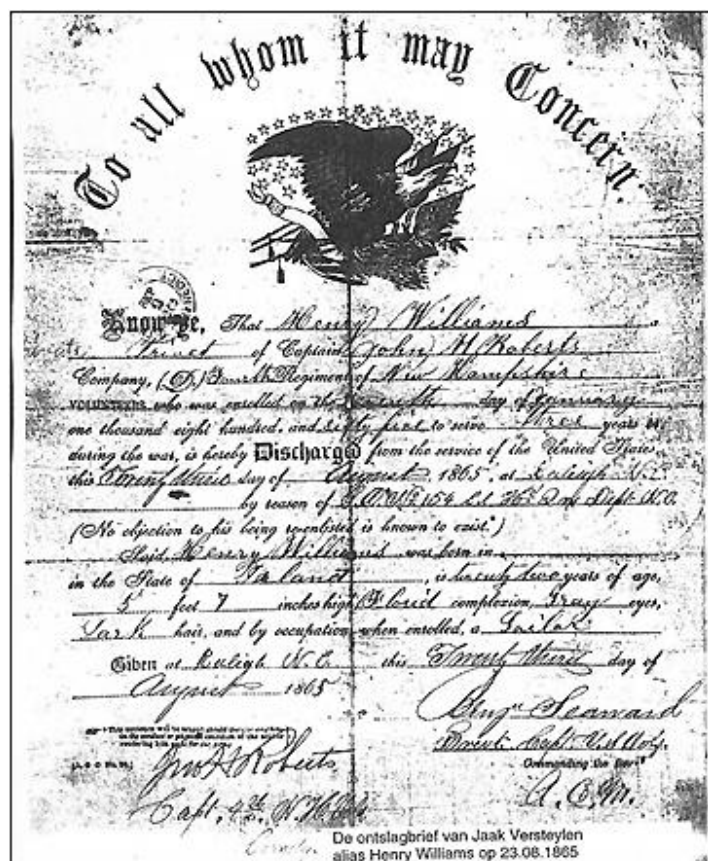 To all whom it may Concern.
Know ye, That Henry Williams a
Privet of Captain John H Roberts
Company, (D.) Fourth Regiment of New Hampshire
VOLUNTEERS who was enrolled on the day of January
one thousand eight hundred and sixty five to serve Three years or
during the war, is hereby Discharged from the service of the United States,
this Twenty third day of August, 1865, at Raleigh N.C.
by reason of 154 Dept. N.C.
(No objection to his being re-enlisted is known to exist.)
Said Henry Williams was born in
in the State of , is twenty two years of age,
5 feet 7 inches high, Florid complexion, Gray eyes,
Dark hair, and by occupation, when enrolled, a Sailor
Given at Raleigh N.C. this Twenty third day of
August 1865
Benj. Seaward
Commanding the
Jno H Roberts
A. C. M.
Capt. 4th N.H.
De ontslagbrief van Jaak Versteylen
alias Henry Williams op 23.08.1865